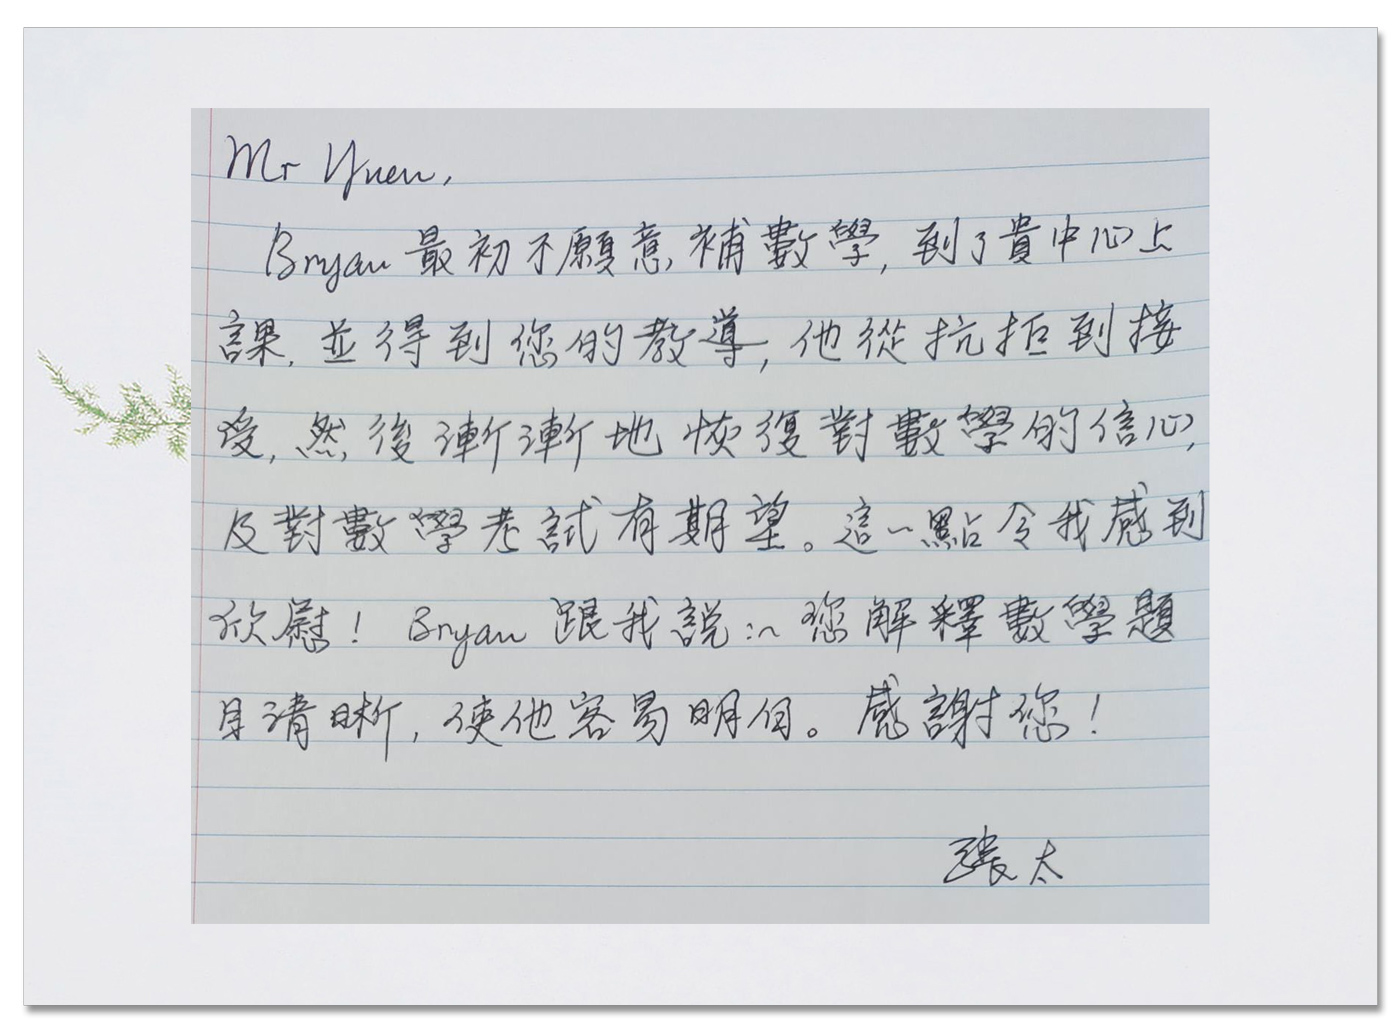 Mr Yuen,
Bryan 最初不願意補數學, 到了貴中心上
課, 並得到您的教導, 他從抗拒到接
受, 然後漸漸地恢復對數學的信心,
及對數學考試有期望。這一點令我感到
欣慰! Bryan 跟我說:~ 您解釋數學題
目清晰, 使他容易明白。感謝您!
張太